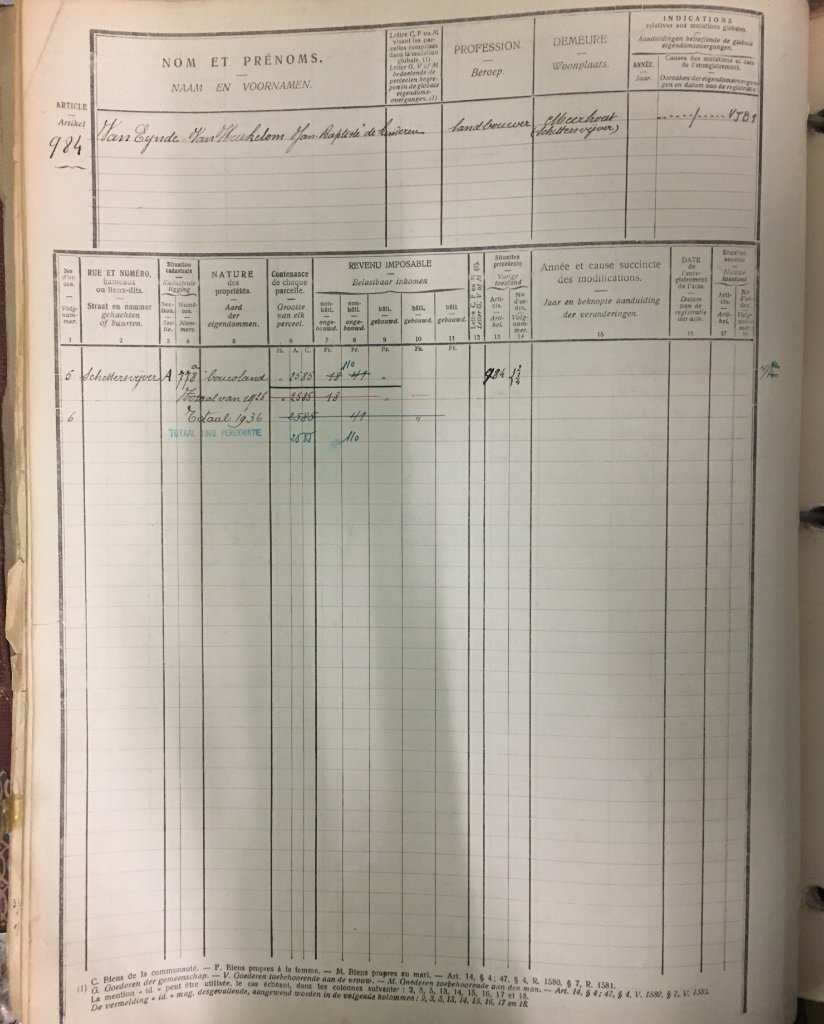 NOM ET PRÉNOMS.
NAAM EN VOORNAMEN.
Lettre C, F ou M
visant les par-
celles comprises
dans la mutation
globale. (1)
Letter G, V of M,
bedoelende de
perceelen begre-
pen in de globale
eigendoms-
overgangen. (1)
PROFESSION.
Beroep.
DEMEURE.
Woonplaats.
INDICATIONS
relatives aux mutations globales
Aanduidingen betreffende de globale
eigendomsovergangen.
ANNÉE.
Jaar.
Causes des mutations et date
de l'enregistrement.
Oorzaken der eigendomsovergan-
gen en datum van de registratie
ARTICLE
Artikel
984
Van Eynde - Van Jan Baptiste de kinderen
landbouwer
Meerhout
(Schittersvijver)
VTB1
No
d'or-
dre.
Volg-
num-
mer.
1
RUE ET NUMÉRO.
hameaux
ou lieux-dits.
Straat en nummer
gehuchten
of buurten.
2
Situation
cadastrale
Kadastrale
ligging
Sec-
tion.
Sec-
tie.
3
Numé-
ros.
Num-
mers.
4
NATURE
des
propriétés.
Aard
der
eigendommen.
5
Contenance
de chaque
parcelle.
Grootte
van elk
perceel.
6
REVENU IMPOSABLE
Belastbaar inkomen
non-
bâti.
onge-
bouwd.
7
non-
bâti.
onge-
bouwd.
8
bâti.
gebouwd.
9
bâti.
gebouwd.
10
bâti.
gebouwd.
11
Lettre C, F ou M.
Letter G, V of M.
12
Situation
précédente
Vorige
toestand
Arti-
cle.
Arti-
kel.
13
No
d'or-
dre.
Volg-
num-
mer.
14
Année et cause succincte
des modifications.
Jaar en beknopte aanduiding
der veranderingen.
15
DATE
de
l'enre-
gistrement
de l'acte.
Datum
van de
registratie
der acte.
16
Situation
nouvelle
Nieuwe
toestand
Arti-
cle.
Arti-
kel.
17
No
d'or-
dre.
Volg-
num-
mer.
18
H. A. C. Fr. Fr. Fr. Fr. Fr.
110
5 Schittersvijver A 778 a bouwland " 2585 18 41 " 984
Totaal van 1926 " 2585 18 "
6 Totaal 1936 2585 41 "
TOTAAL PEREKWATIE 2585 110
C. Biens de la communauté. — F. Biens propres à la femme. — M. Biens propres au mari. — Art. 14, § 4; 47, § 4, R. 1580, § 7, R. 1581.
(1) G. Goederen der gemeenschap. — V. Goederen toebehoorende aan de vrouw. — M. Goederen toebehoorende aan den man. — Art. 14, § 4; 47, § 4, V. 1580, § 7, V. 1581.
La mention « id. » peut être utilisée, le cas échéant, dans les colonnes suivantes : 2, 3, 5, 13, 14, 15, 16, 17 et 18.
De vermelding « id. » mag, desgevallende, aangewend worden in de volgende kolommen: 2, 3, 5, 13, 14, 15, 16, 17 en 18.